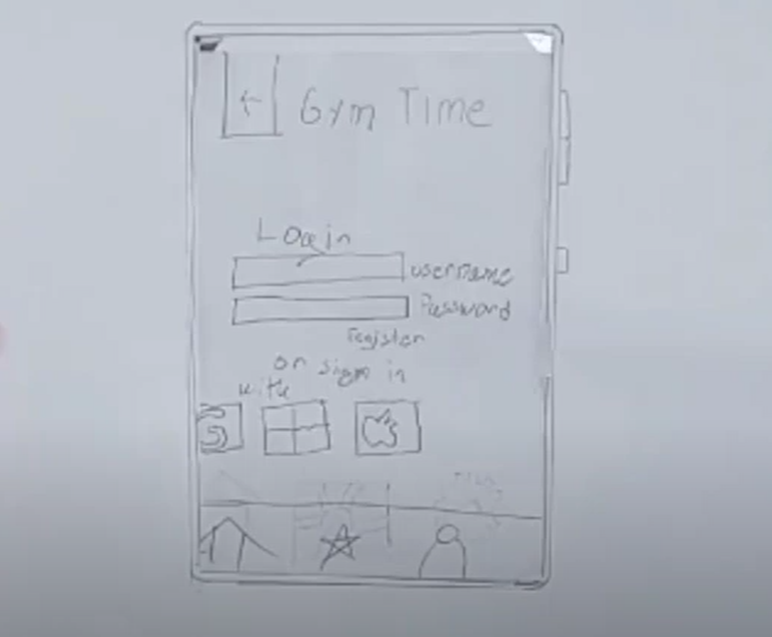 Gym Time
Login
username
Password
register
or sign in
with